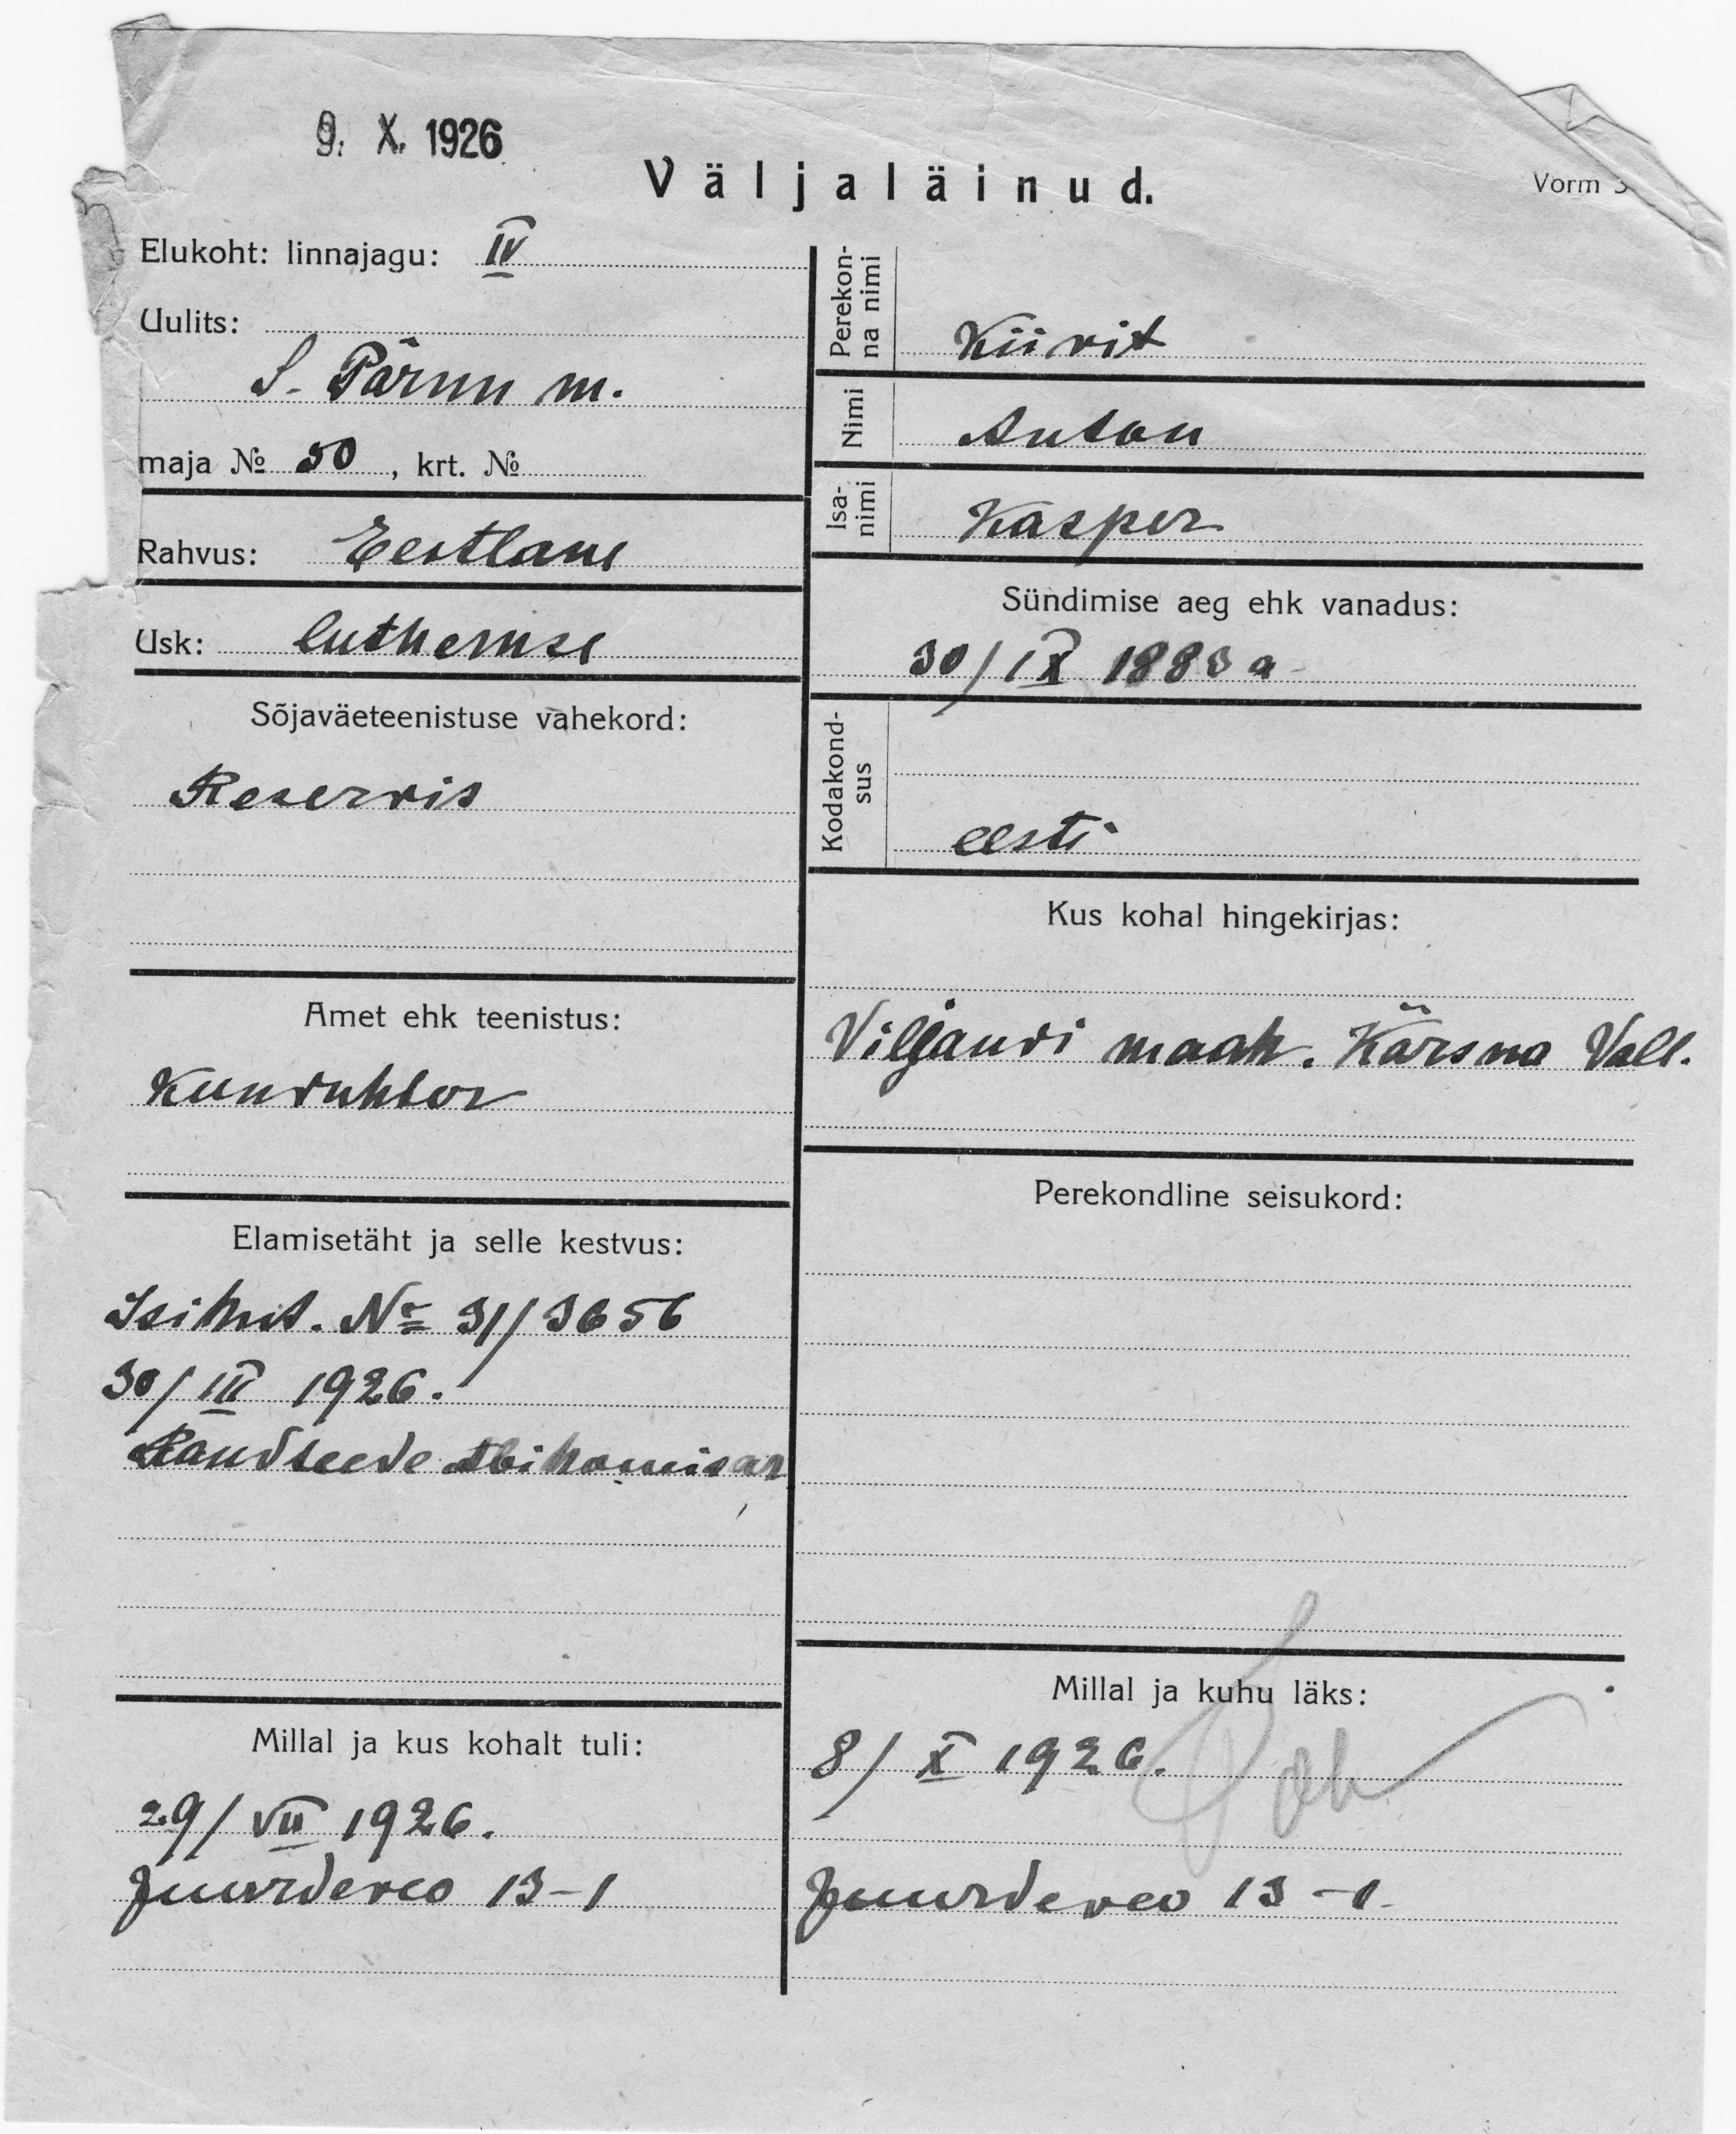 9. X. 1926
Väljaläinud.
Vorm 3
Elukoht: linnajagu: IV
Uulits:
S. Pärnu m.
maja № 50, krt. №
Rahvus: Eestlane
Usk: lutheruse
Sõjaväeteenistuse vahekord:
Reservis
Amet ehk teenistus:
Kunduhtor
Elamisetäht ja selle kestvus:
Isikut. № 31/3656
30/III 1926.
Raudteede abikomisar
Millal ja kus kohalt tuli:
29/VII 1926.
Juurdeveo 13-1
Perekonna nimi
Kiirit
Nimi
Anton
Isanimi
Kasper
Sündimise aeg ehk vanadus:
30/IX 1883 a
Kodakondsus
eesti
Kus kohal hingekirjas:
Viljandi maak. Kärsna Vall.
Perekondline seisukord:
Millal ja kuhu läks:
8/X 1926.
Juurdeveo 13-1.